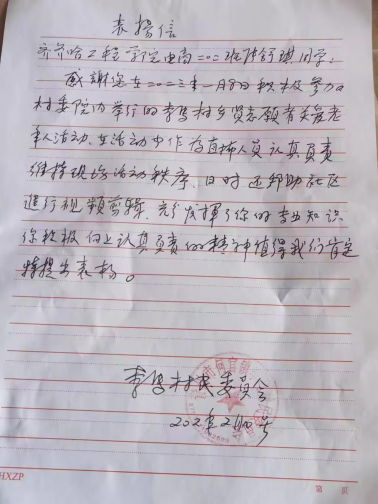 表扬信
齐齐哈工程学院电商二〇二班陈舒琪同学:
感谢您在二〇二三年一月8日积极参加
村委院内举行的李马村乡贤志愿者关爱老
年人活动、在活动中作为直播人员认真负责
维持现场活动秩序、同时还帮助社区
进行视频剪辑,充分发挥了你的专业知识
你积极向上认真负责的精神值得我们肯定
特提出表扬。
李马村民委员会
HXZP
第 页